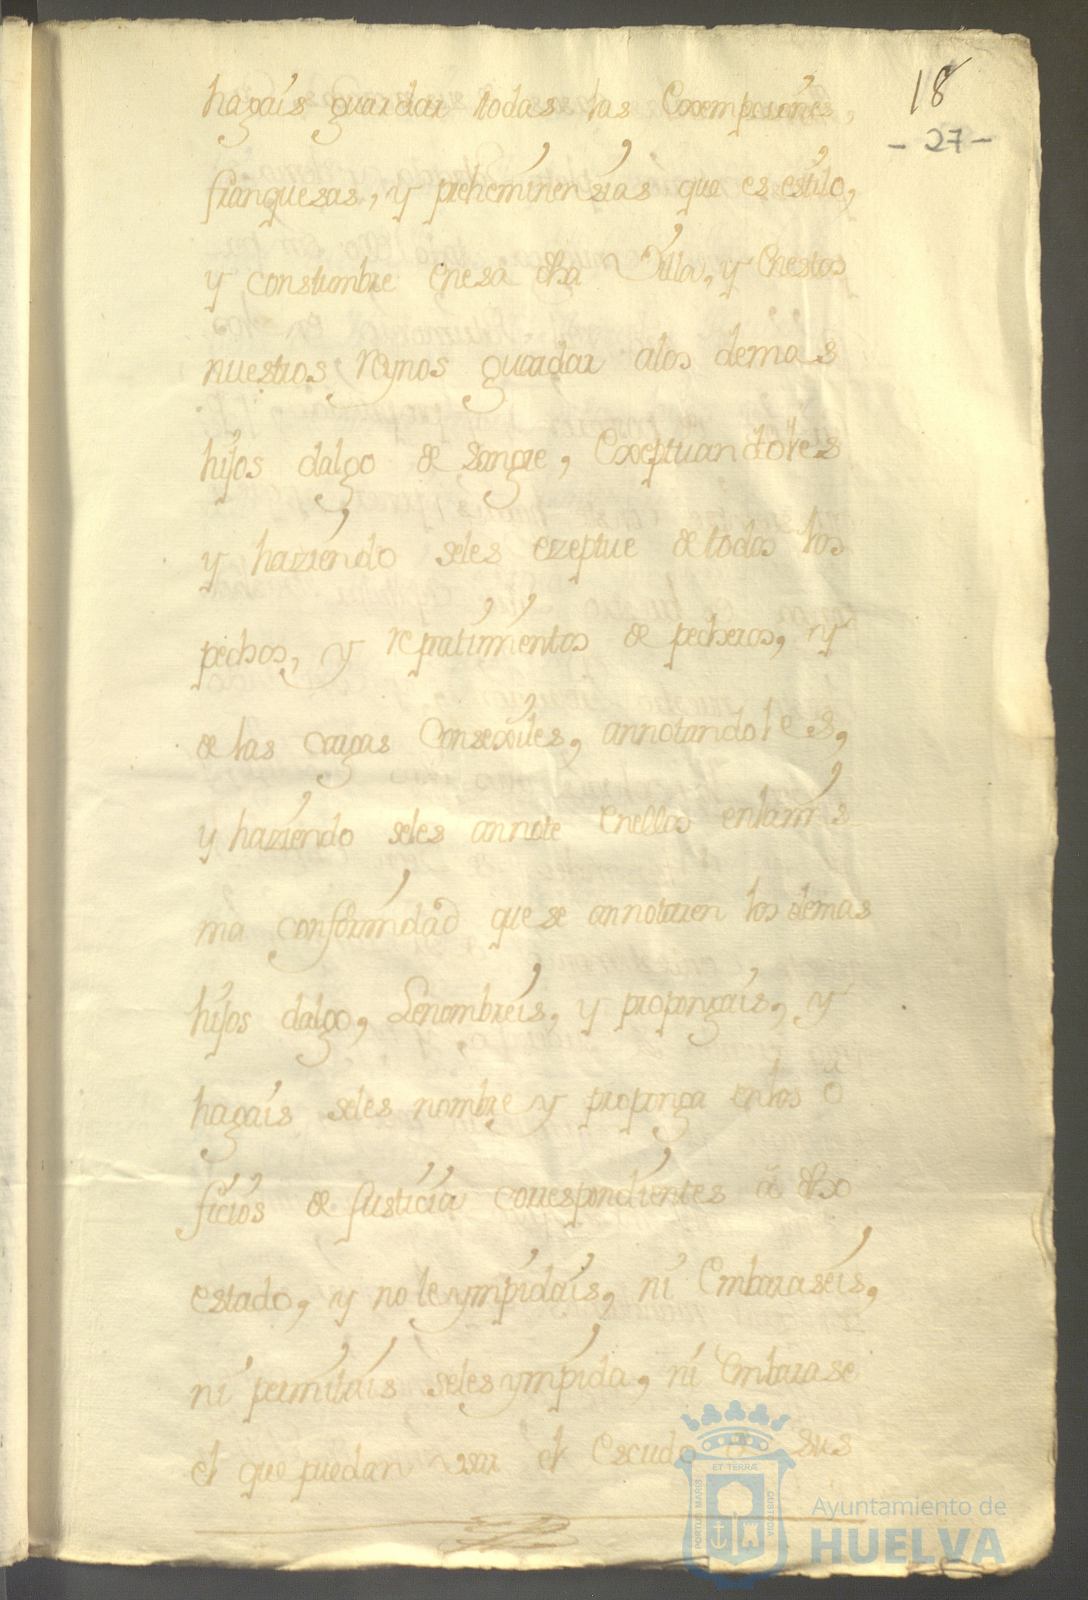 18
- 27 -
hagais guardar todas las Exsempsiones,
franquesas, y preheminensias que es estilo,
y constumbre enesa dha Villa, y Enestos
nuestros Reynos guardar alos demas
hijos dalgo de sangre, Exseptuandoles
y haziendo seles ezeptue de todos los
pechos, y repatimientos de pecheros, y
de las cargas Consexiles, annotandoles,
y haziendo seles annote Enellos enlamis
ma conformidad que se annotaren los demas
hijos dalgo, Lenombreis, y propongais, y
hagais seles nombre y proponga enlos o
ficios de Justicia correspondientes â dho
estado, y no le ympidais, ni Embaraseis,
ni permitais seles ympida, ni Embarase
el que puedan usar el Escudo de sus
PORTUS MARIS ET TERRÆ CUSTODIA
Ayuntamiento de
HUELVA